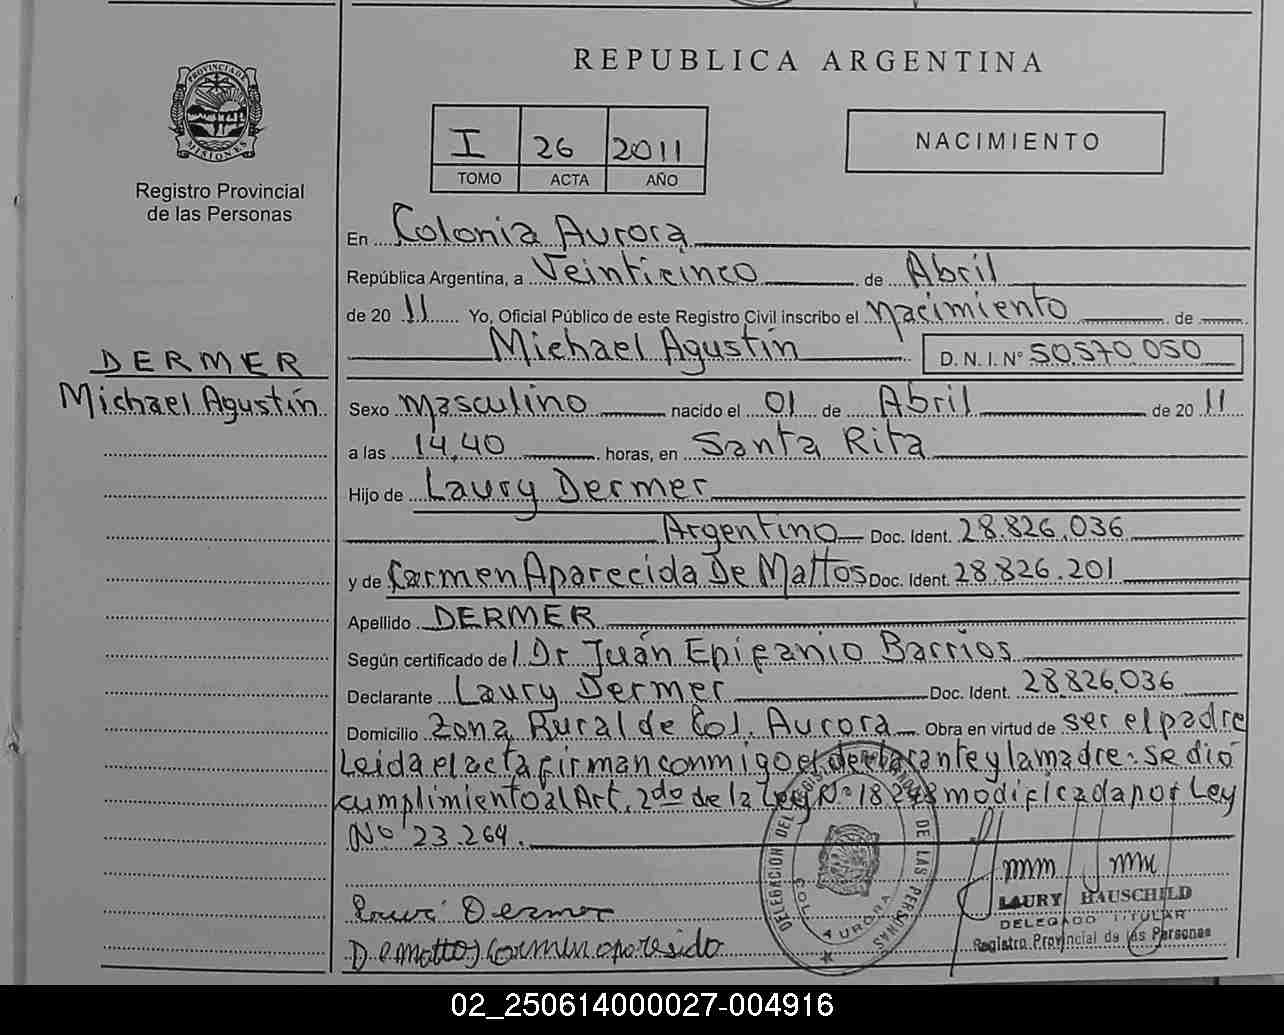 REPUBLICA ARGENTINA
PROVINCIA DE
MISIONES
Registro Provincial
de las Personas
I 26 2011
TOMO ACTA AÑO
NACIMIENTO
En Colonia Aurora
República Argentina, a Veinticinco de Abril
de 20 11 Yo, Oficial Público de este Registro Civil inscribo el nacimiento de
Michael Agustín D.N.I.Nº 50.570.050
DERMER
Michael Agustín
Sexo masculino nacido el 01 de Abril de 20 11
a las 14,40 horas, en Santa Rita
Hijo de Laury Dermer
Argentino Doc. Ident. 28.826.036
y de Carmen Aparecida De Mattos Doc. Ident. 28.826.201
Apellido DERMER
Según certificado de Dr Juán Epifanio Barrios
Declarante Laury Dermer Doc. Ident. 28826.036
Domicilio Zona Rural de Col. Aurora Obra en virtud de ser el padre
Leida el acta firman conmigo el declarante y la madre. Se dió
cumplimiento al Art. 2do de la Ley Nº 18248 modificada por Ley
Nº 23.264.
DELEGACION DEL REGISTRO DE LAS PERSONAS
COL. AURORA
LAURY HAUSCHILD
DELEGADO TITULAR
Registro Provincial de las Personas
Dermer
De mattos carmen aparesida
02_250614000027-004916